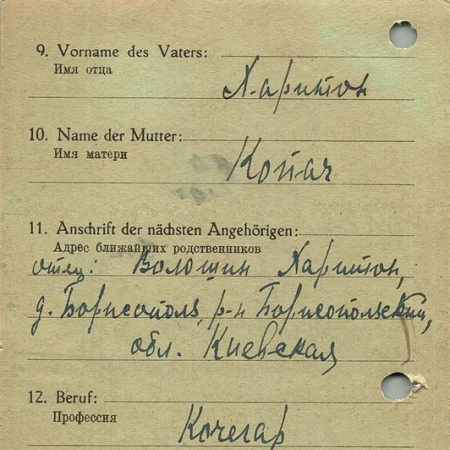 9. Vorname des Vaters:
Имя отца
Харитон
10. Name der Mutter:
Имя матери
Копач
11. Anschrift der nächsten Angehörigen:
Адрес ближайших родственников
отец: Волошин Харитон,
д. Борисополь р-н Борисопольский,
обл. Киевская
12. Beruf:
Профессия
Кочегар